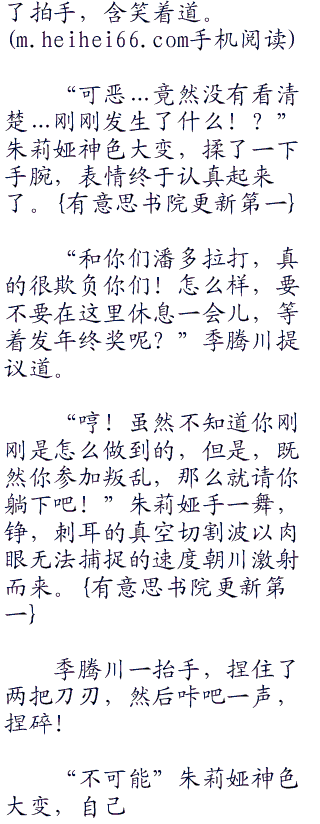 了拍手，含笑着道。
(m.heihei66.com手机阅读)
“可恶…竟然没有看清
楚…刚刚发生了什么！？”
朱莉娅神色大变，揉了一下
手腕，表情终于认真起来
了。{有意思书院更新第一}
“和你们潘多拉打，真
的很欺负你们！怎么样，要
不要在这里休息一会儿，等
着发年终奖呢？”季腾川提
议道。
“哼！虽然不知道你刚
刚是怎么做到的，但是，既
然你参加叛乱，那么就请你
躺下吧！”朱莉娅手一舞，
铮，刺耳的真空切割波以肉
眼无法捕捉的速度朝川激射
而来。{有意思书院更新第
一}
季腾川一抬手，捏住了
两把刀刃，然后咔吧一声，
捏碎！
“不可能”朱莉娅神色
大变，自己